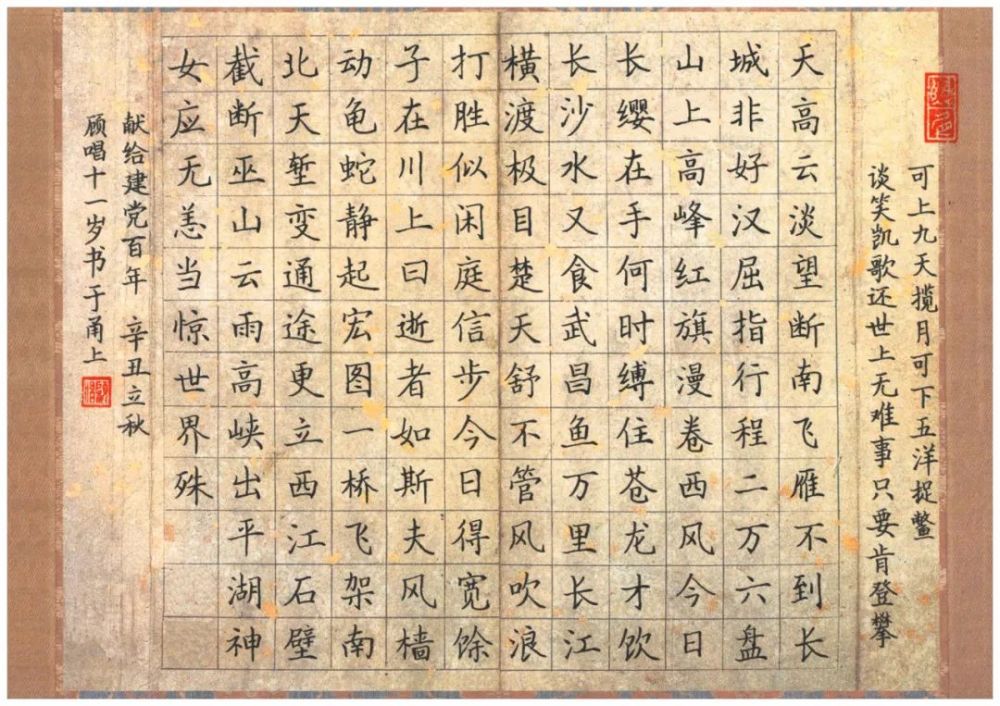 可上九天揽月可下五洋捉鳖
谈笑凯歌还世上无难事只要肯登攀
天高云淡望断南飞雁不到长
城非好汉屈指行程二万六盘
山上高峰红旗漫卷西风今日
长缨在手何时缚住苍龙才饮
长沙水又食武昌鱼万里长江
横渡极目楚天舒不管风吹浪
打胜似闲庭信步今日得宽馀
子在川上曰逝者如斯夫风樯
动龟蛇静起宏图一桥飞架南
北天堑变通途更立西江石壁
截断巫山云雨高峡出平湖神
女应无恙当惊世界殊
献给建党百年 辛丑立秋
顾唱十一岁书于甬上